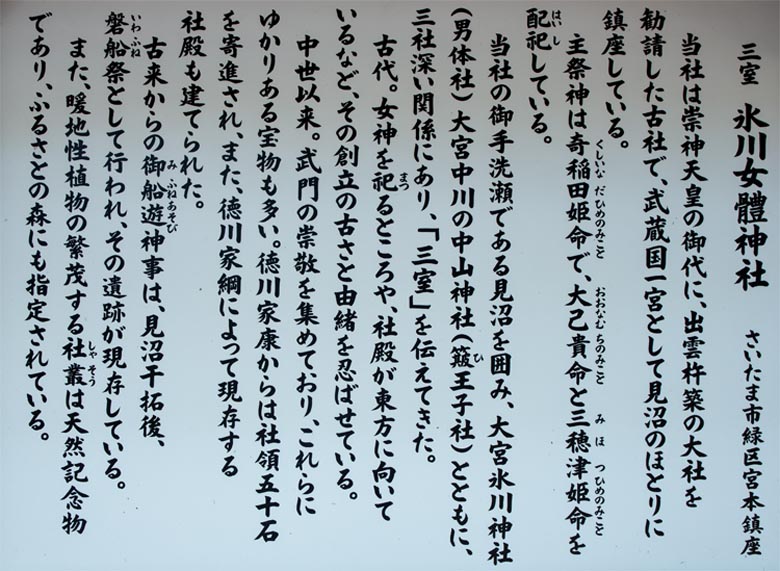 三室 氷川女體神社 さいたま市緑区宮本鎮座
当社は崇神天皇の御代に、出雲杵築の大社を
勧請した古社で、武蔵国一宮として見沼のほとりに
鎮座している。
主祭神は奇稲田姫命で、大己貴命と三穂津姫命を
くしいなだひめのみこと おおなむちのみこと みほつひめのみこと
配祀している。
はいし
当社の御手洗瀬である見沼を囲み、大宮氷川神社
(男体社)大宮中川の中山神社(簸王子社)とともに、
ひ
三社深い関係にあり、「三室」を伝えてきた。
古代。女神を祀るところや、社殿が東方に向いて
まつ
いるなど、その創立の古さと由緒を忍ばせている。
中世以来。武門の崇敬を集めており、これらに
ゆかりある宝物も多い。徳川家康からは社領五十石
を寄進され、また、徳川家綱によって現存する
社殿も建てられた。
古来からの御船遊神事は、見沼干拓後、
みふねあそび
磐船祭として行われ、その遺跡が現存している。
いわふね
また、暖地性植物の繁茂する社叢は天然記念物
しゃそう
であり、ふるさとの森にも指定されている。